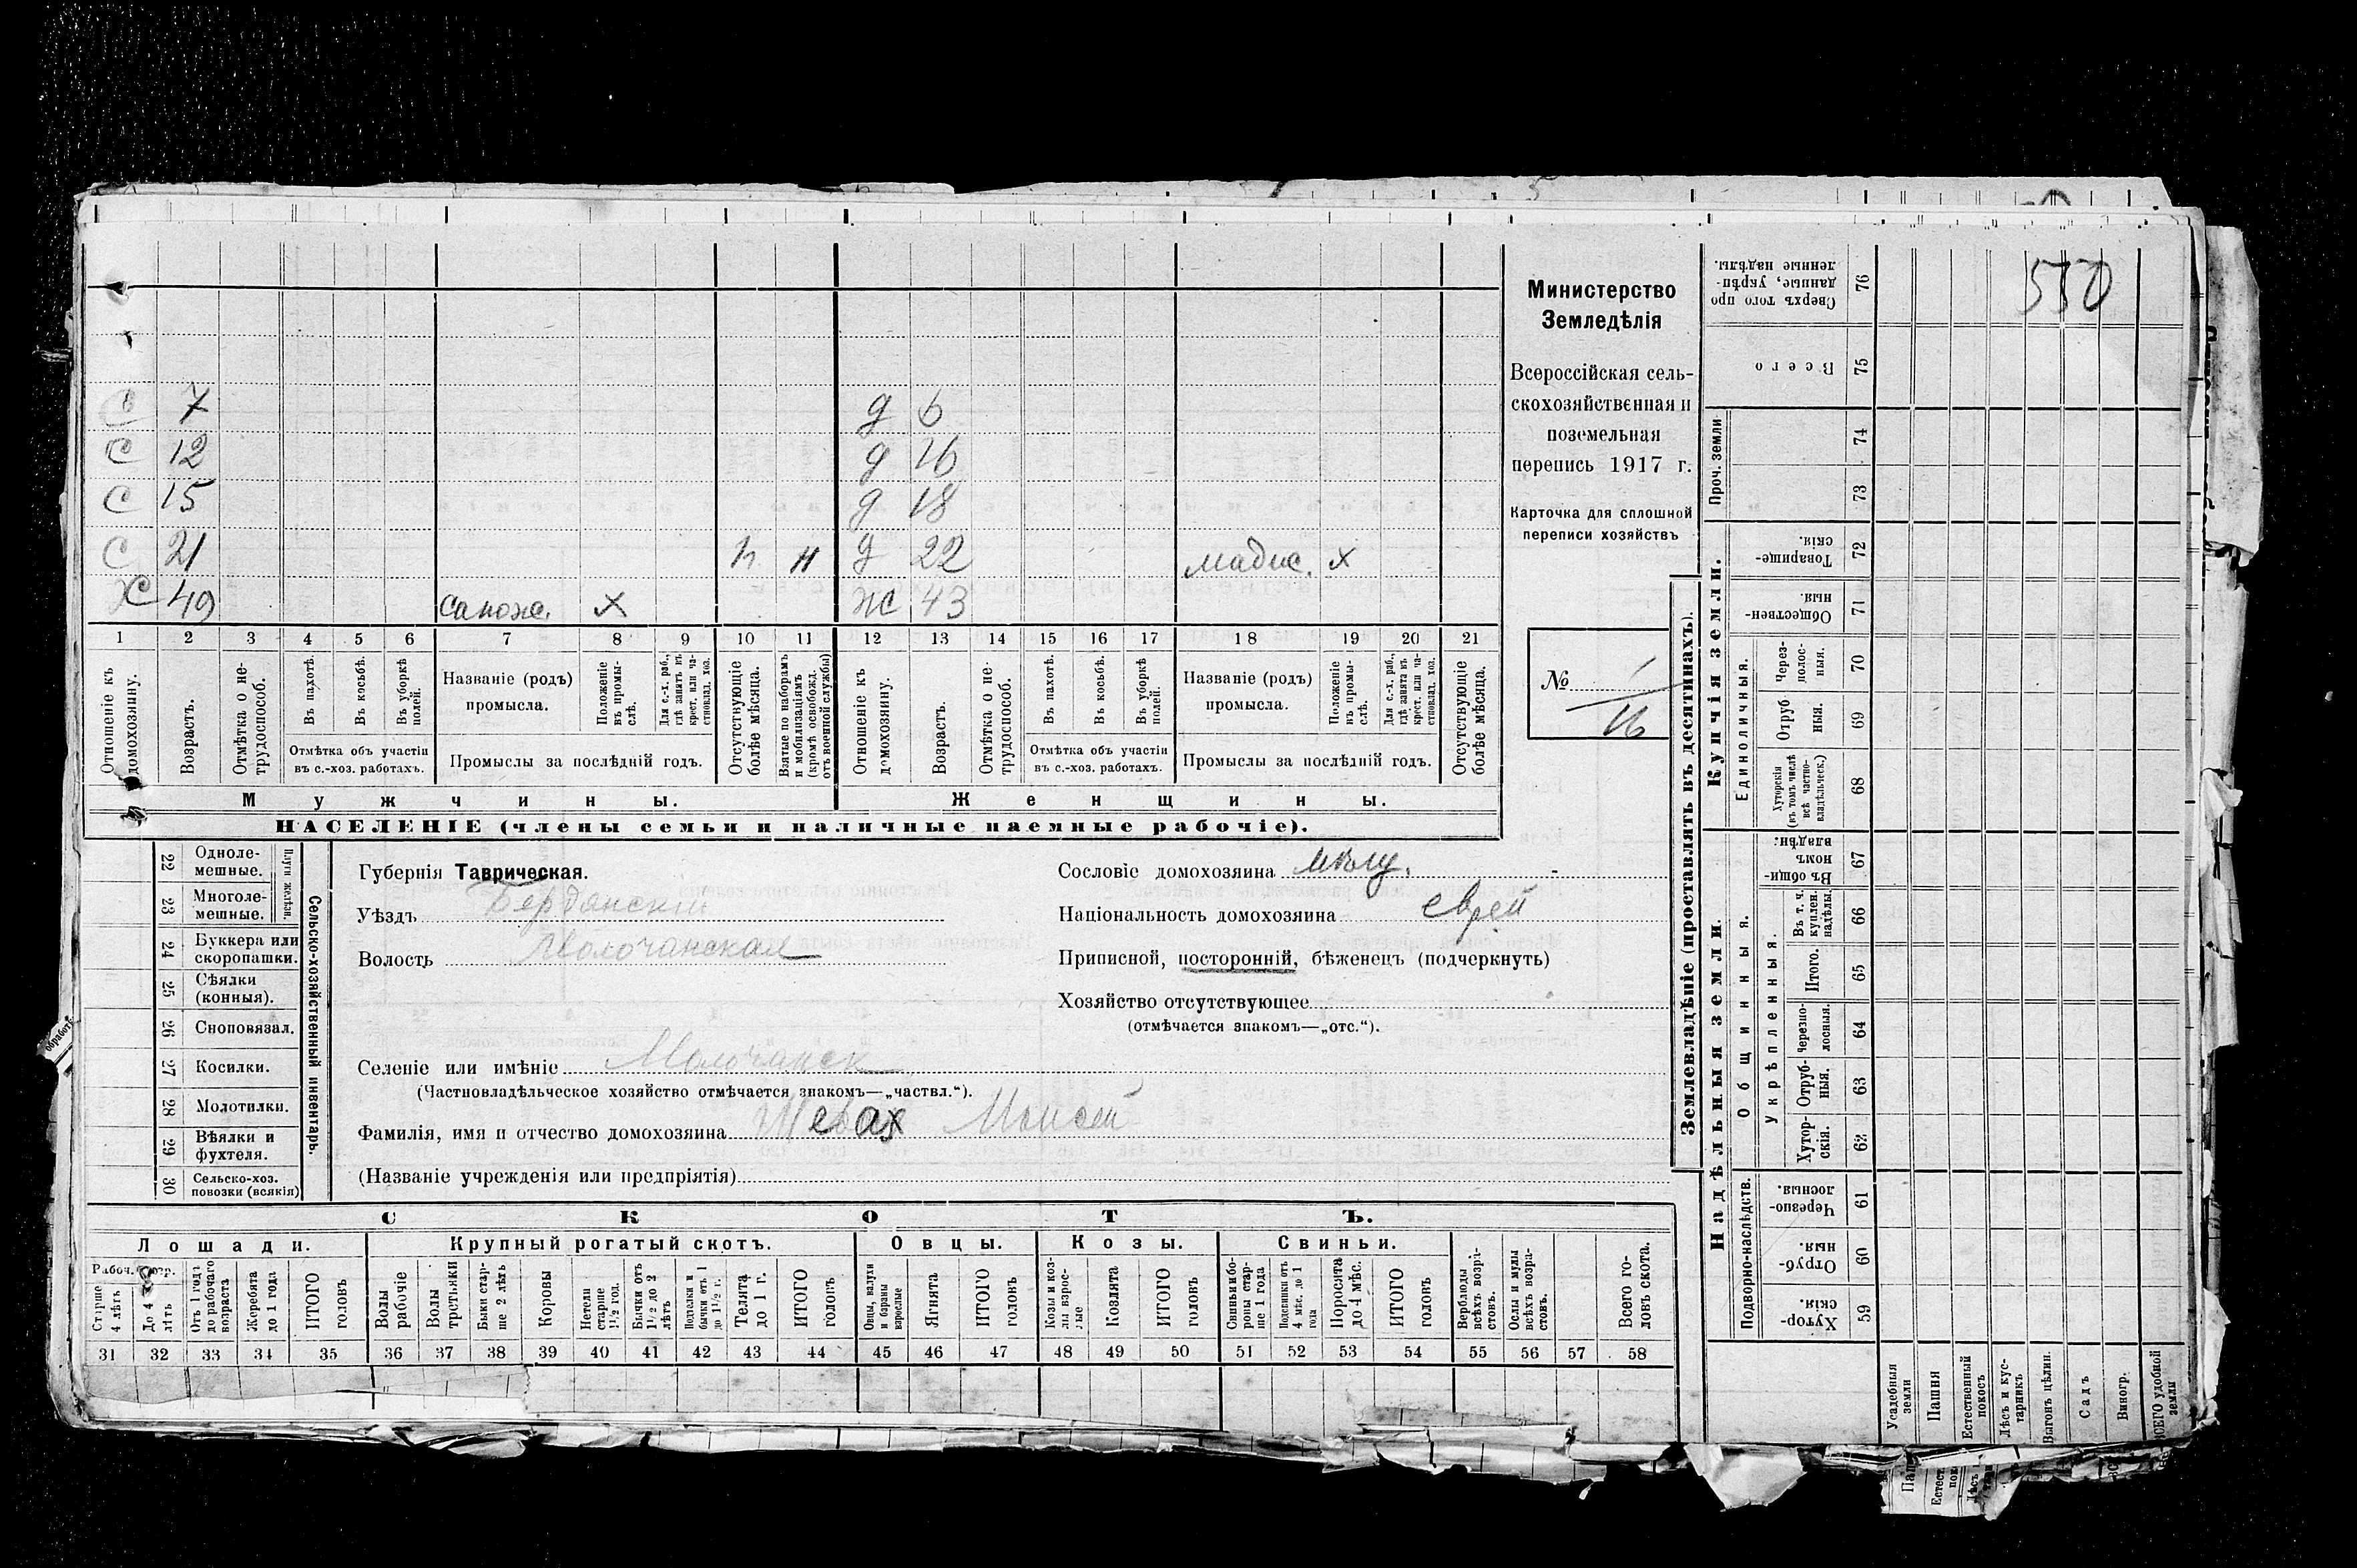 550
Министерство
Земледѣлія
Всероссійская сель-
скохозяйственная и
поземельная
перепись 1917 г.
Карточка для сплошной
переписи хозяйствъ
№ 1
16
С 7 д 6
С 12 д 16
С 15 д 18
С 21 н н д 22 х
49 сапож. х ж 43
1 2 3 4 5 6 7 8 9 10 11 12 13 14 15 16 17 18 19 20 21
Отношеніе къ домохозяину.
Возрастъ.
Отмѣтка о не-трудоспособ.
Въ пахотѣ.
Въ косьбѣ.
Въ уборкѣ полей.
Отмѣтка объ участіи
въ с.-хоз. работахъ.
Названіе (родъ)
промысла.
Положеніе въ промы-слѣ.
Для с.-х. раб., гдѣ занятъ въ крест. или ча-стновлад. хоз.
Промыслы за послѣдній годъ.
Отсутствующіе болѣе мѣсяца.
Взятые по наборамъ и мобилизаціямъ (кромѣ освобожд. отъ военной службы)
Отношеніе къ домохозяину.
Возрастъ.
Отмѣтка о не-трудоспособ.
Въ пахотѣ.
Въ косьбѣ.
Въ уборкѣ полей.
Отмѣтка объ участіи
въ с.-хоз. работахъ.
Названіе (родъ)
промысла.
Положеніе въ промы-слѣ.
Для с.-х. раб., гдѣ занята въ крест. или ча-стновлад. хоз.
Промыслы за послѣдній годъ.
Отсутствующіе болѣе мѣсяца.
Мужчины. Женщины.
НАСЕЛЕНІЕ (члены семьи и наличные наемные рабочіе).
Сельско-хозяйственный инвентарь.
Плуги желѣзн.
22 Одноле-
мешные.
23 Многоле-
мешные.
24 Буккера или
скоропашки.
25 Сѣялки
(конныя).
26 Сноповязал.
27 Косилки.
28 Молотилки.
29 Вѣялки и
фухтеля.
30 Сельско-хоз.
повозки (всякія)
Губернія Таврическая.
Уѣздъ Бердянскій
Волость Молочанская
Селеніе или имѣніе Молочанск
(Частновладѣльческое хозяйство отмѣчается знакомъ—„частвл.“).
Фамилія, имя и отчество домохозяина Шевах Моисей
(Названіе учрежденія или предпріятія)
Сословіе домохозяина мѣщ.
Національность домохозяина еврей
Приписной, посторонній, бѣженецъ (подчеркнуть)
Хозяйство отсутствующее
(отмѣчается знакомъ—„отс.“).
СКОТЪ.
Лошади. Крупный рогатый скотъ. Овцы. Козы. Свиньи.
Старше 4 лѣтъ
До 4 лѣтъ
Отъ 1 года до рабочаго возраста
Жеребята до 1 года
ИТОГО головъ
Волы рабочіе
Волы третьяки
Быки стар-ше 2 лѣтъ
Коровы
Нетели старше 1½ год.
Бычки отъ 1½ до 2 лѣтъ
Подтелки и бычки отъ 1 до 1½ г.
Телята до 1 г.
ИТОГО головъ
Овцы, валухи и бараны взрослые
Ягнята
ИТОГО головъ
Козы и коз-лы взрос-лые
Козлята
ИТОГО головъ
Свиньи и бо-ровы стар-ше 1 года
Подсвинки отъ 4 мѣс. до 1 года
Поросята до 4 мѣс.
ИТОГО головъ
Верблюды всѣхъ возра-стовъ.
Ослы и мулы всѣхъ возра-стовъ.
Всего го-ловъ скота.
31 32 33 34 35 36 37 38 39 40 41 42 43 44 45 46 47 48 49 50 51 52 53 54 55 56 57 58
Землевладѣніе (проставлять въ десятинахъ).
Купчія земли.
Надѣльныя земли.
Проч. земли
Единоличныя.
Общинныя.
Укрѣпленныя.
Подворно-наслѣдств.
76 Сверхъ того про
данные, укрѣп-
ленные надѣлы.
75 Всего
74
73
72 Товарище-
скія.
71 Обществен-
ныя
70 Через-
полос-
ныя.
69 Отруб
ныя.
68 Хуторскія
(въ томъ числѣ
всѣ частно-
владѣльческ.)
67 Въ общи-
номъ
владѣн.
66 Въ т. ч.
куплен.
надѣлы
65 Итого.
64 Черезпо-
лосныя.
63 Отруб-
ныя.
62 Хутор-
скія.
61 Черезпо-
лосныя.
60 Отруб-
ныя.
59 Хутор-
скія.
Усадебныя земли
Пашня
Естественный покосъ
Лѣсъ и кус-тарникъ
Выгонъ цѣлин.
Садъ
Виногр.
ВСЕГО удобной земли